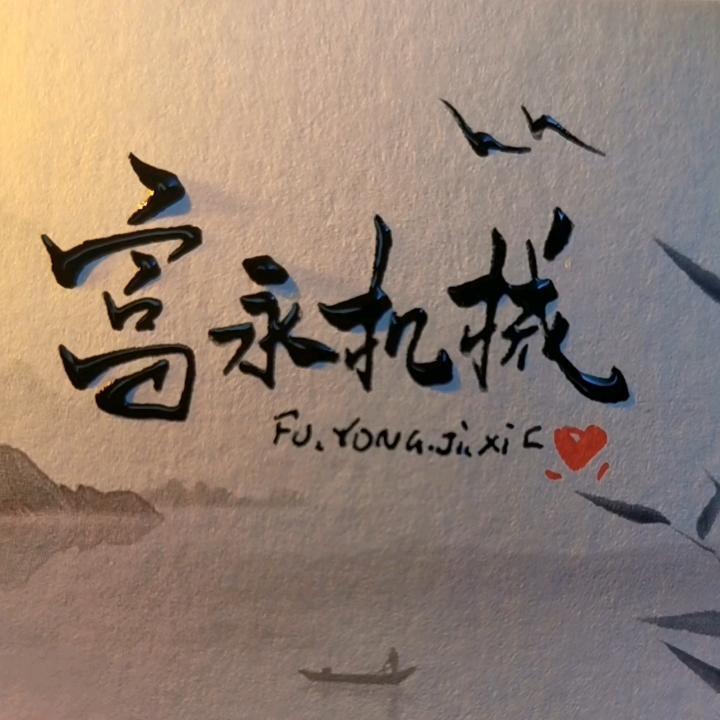 富永机械
FU.YONG.Ji.Xi